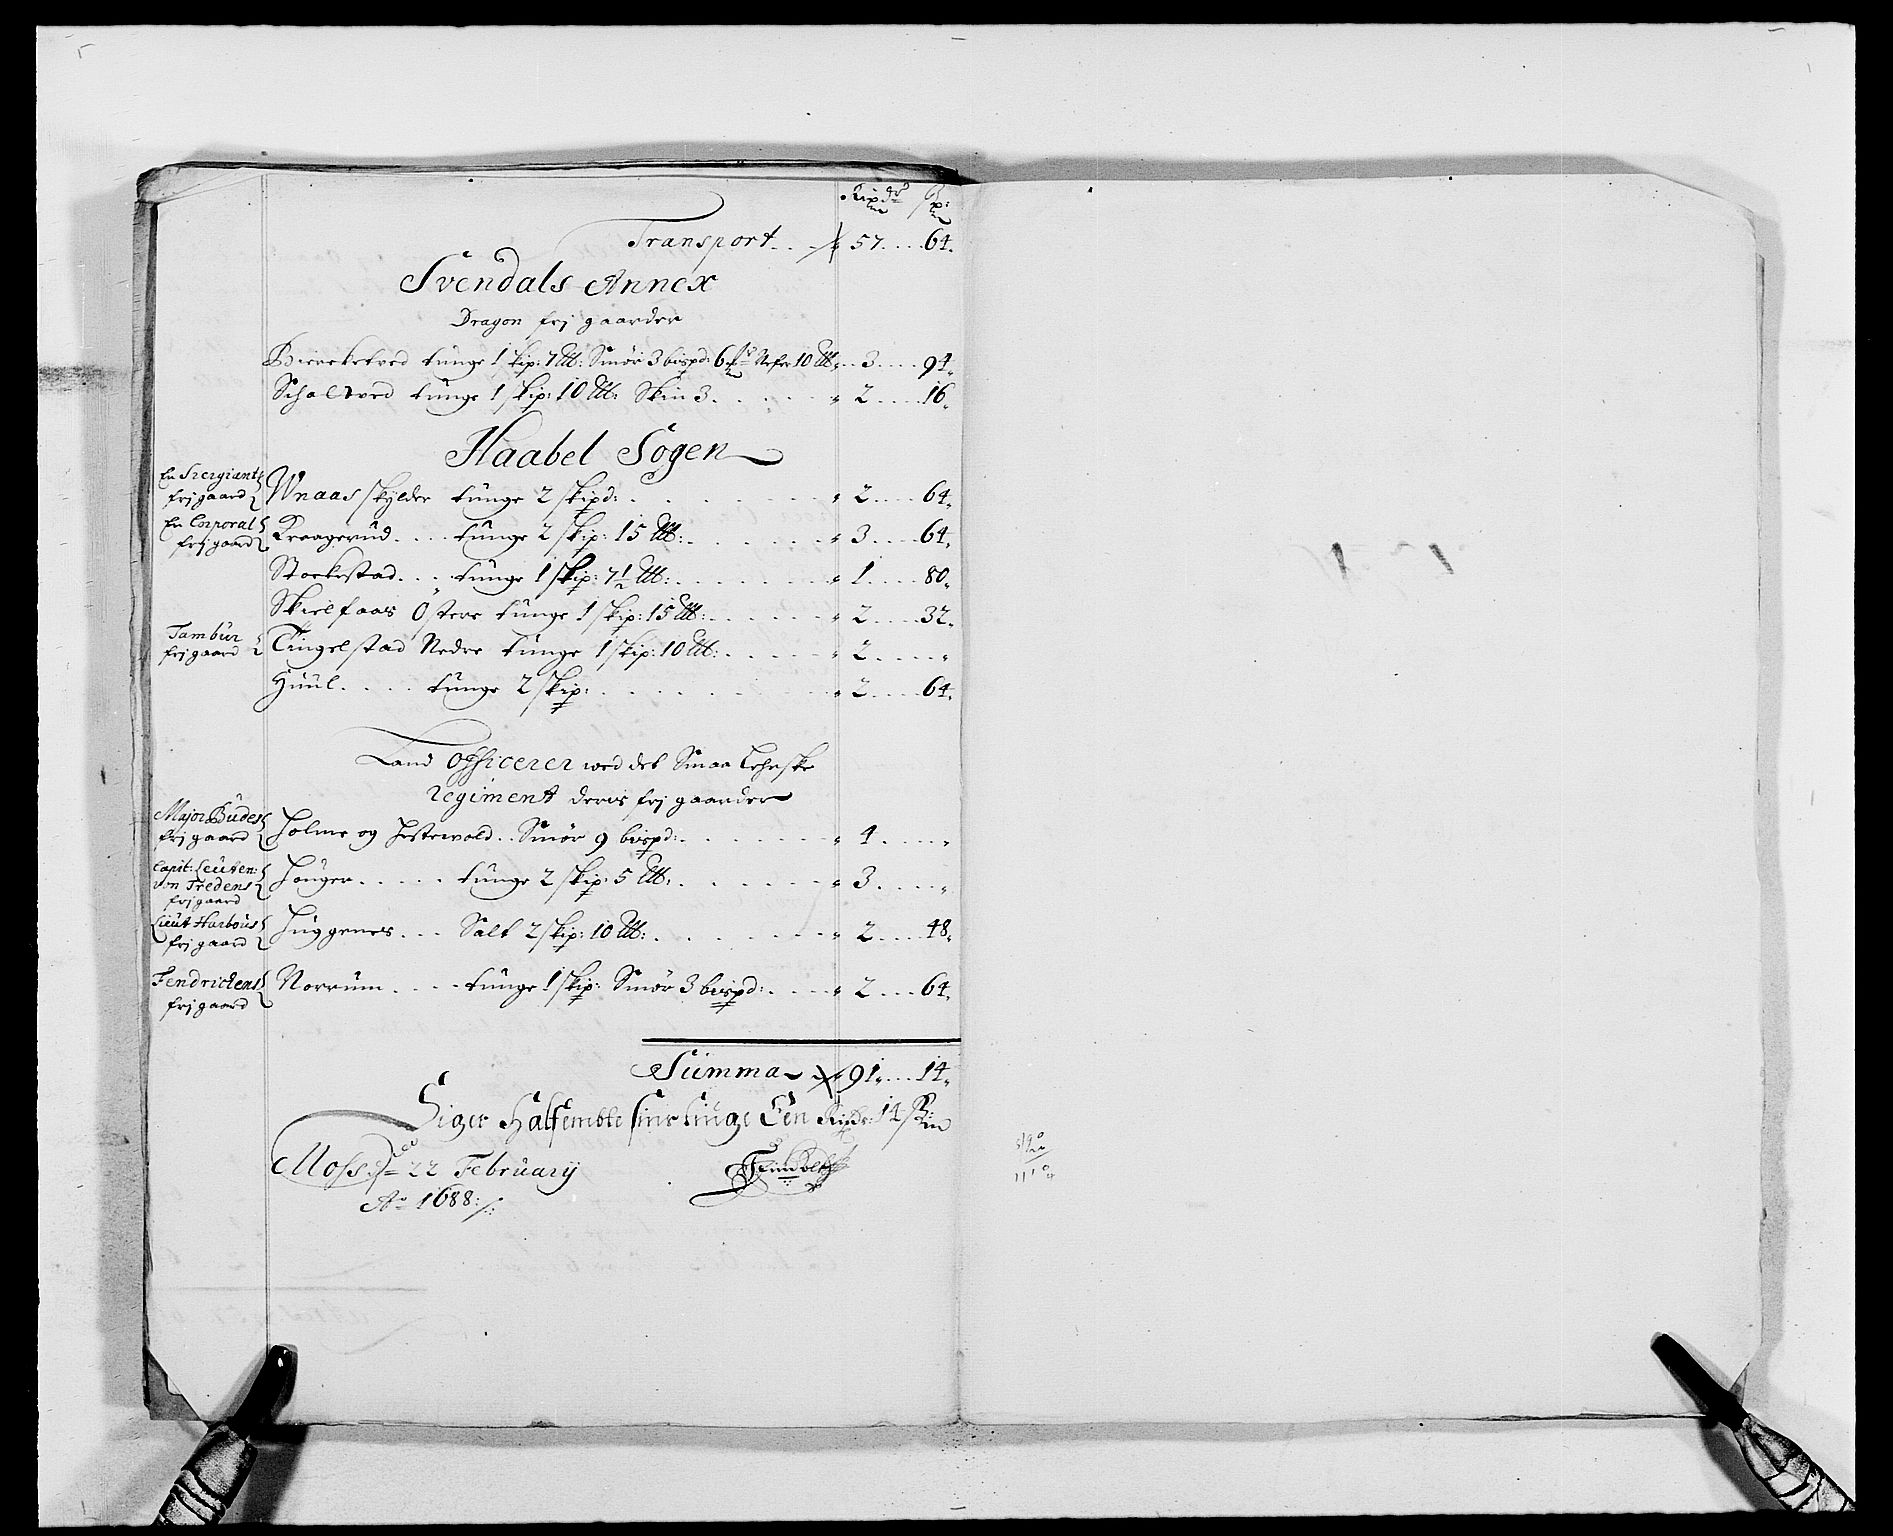 Rixdr ßz:
Transport... 57....64.
Svendals Annex
Dragon frj gaarder
tunge 1 skip: 7 ℔: Smör 3 bispd: 10 ℔: .. 3....94.
tunge 1 skip: 10 ℔: Skin 3...... 2....16.
Haabel Sogen
En Siergiant frjgaard Wnaas skylder tunge 2 skipd: ...... 2....64.
En Corporal frjgaard Kraagerud.... tunge 2 skip: 15 ℔: ...... 3....64.
Stockestad.... tunge 1 skip: 7½ ℔: ...... 1....80.
Skielfaas Östere tunge 1 skip: 15 ℔: ...... 2....32.
Tambür frjgaard Tingelstad Nedre tunge 1 skip: 10 ℔: ...... 2......
Huul..... tunge 2 skip: ...... 2....64.
Land Officerer wed det Smaa Lehnske
regiment deris frj gaarder
Major Büdes frj gaard Holme og .. Smör 9 bispd: ...... 4.....
Capit: Leüten: von Tredens frjgaard Houger..... tunge 2 skip: 5 ℔: ...... 3.....
Lieut Harboüs frj gaard Huggenes... Salt 2 skip: 10 ℔: ...... 2....48.
Fendrichens frj gaard Norrum.... tunge 1 skip: Smör 3 bispd: .... 2....64.
Summa 91....14.
Siger Halfembte sins tiuge Een Rixdr: 14 ß
Moss d 22 February
Ao 1688:/: